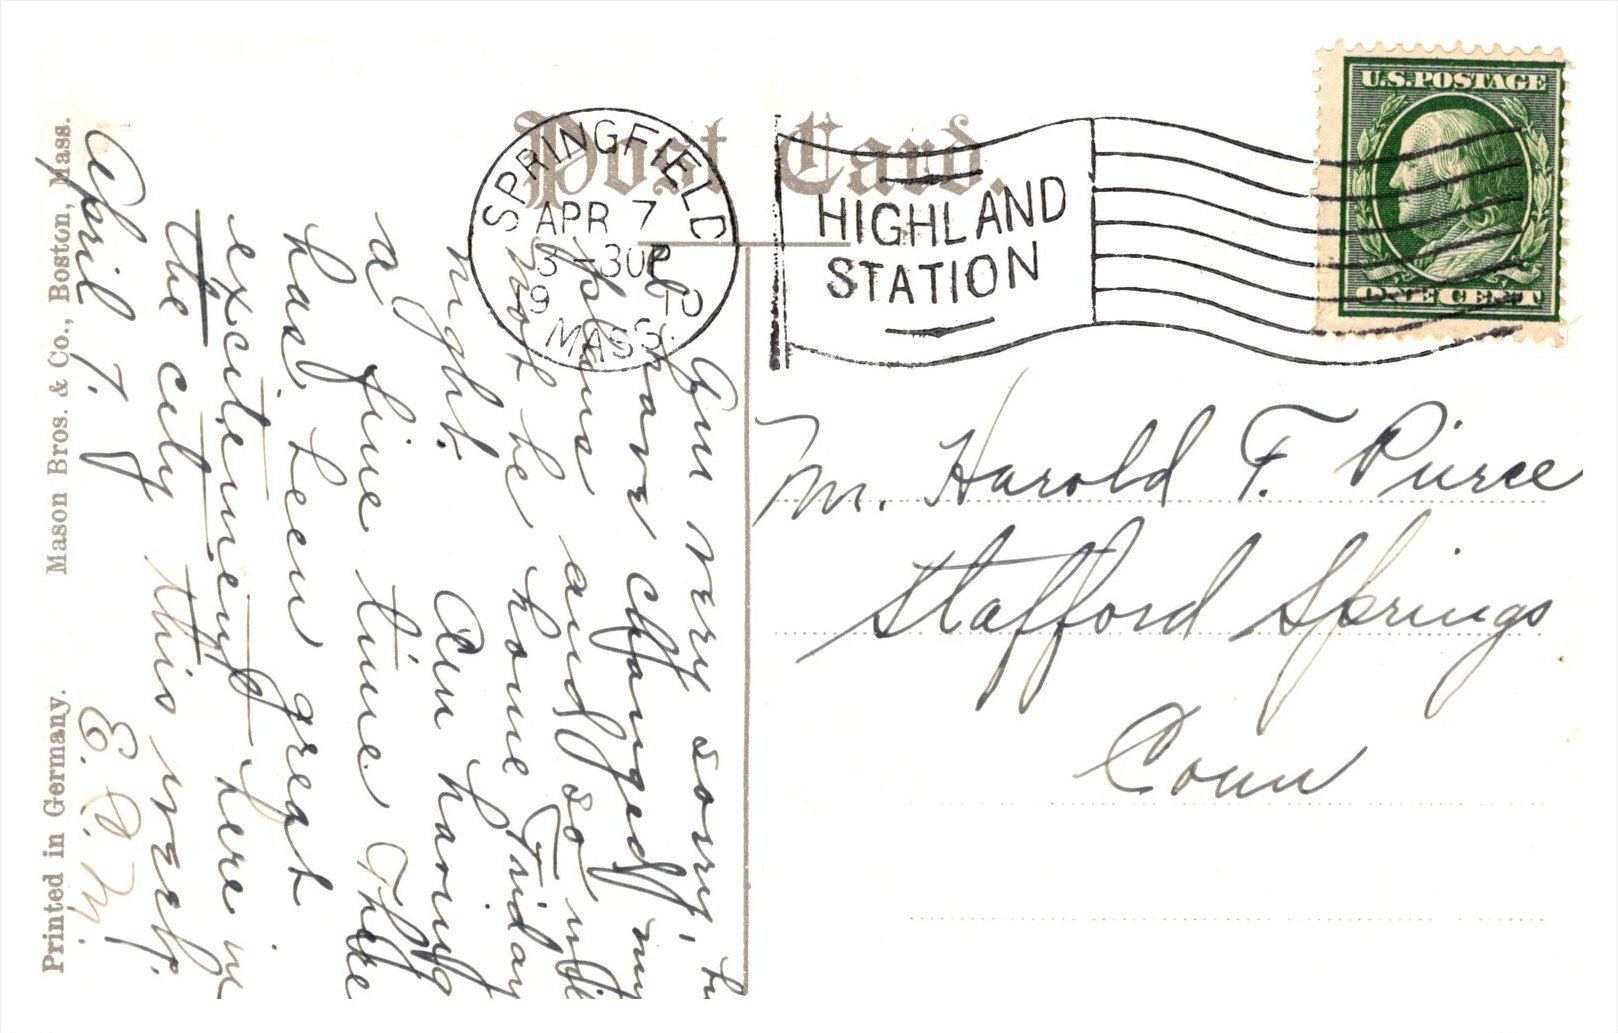 Post Card.
SPRINGFIELD
APR 7
3-30P
19 10
MASS.
HIGHLAND
STATION
U.S. POSTAGE
ONE CENT
Mr. Harold F. Pierce
Stafford Springs
Conn
Am very sorry,
have changed my
plans and so will
not be home Friday
night. Am having
a fine time. There
has been great
excitement here in
the city this week.
April 7.
E. P. M.
Mason Bros. & Co., Boston, Mass.
Printed in Germany.